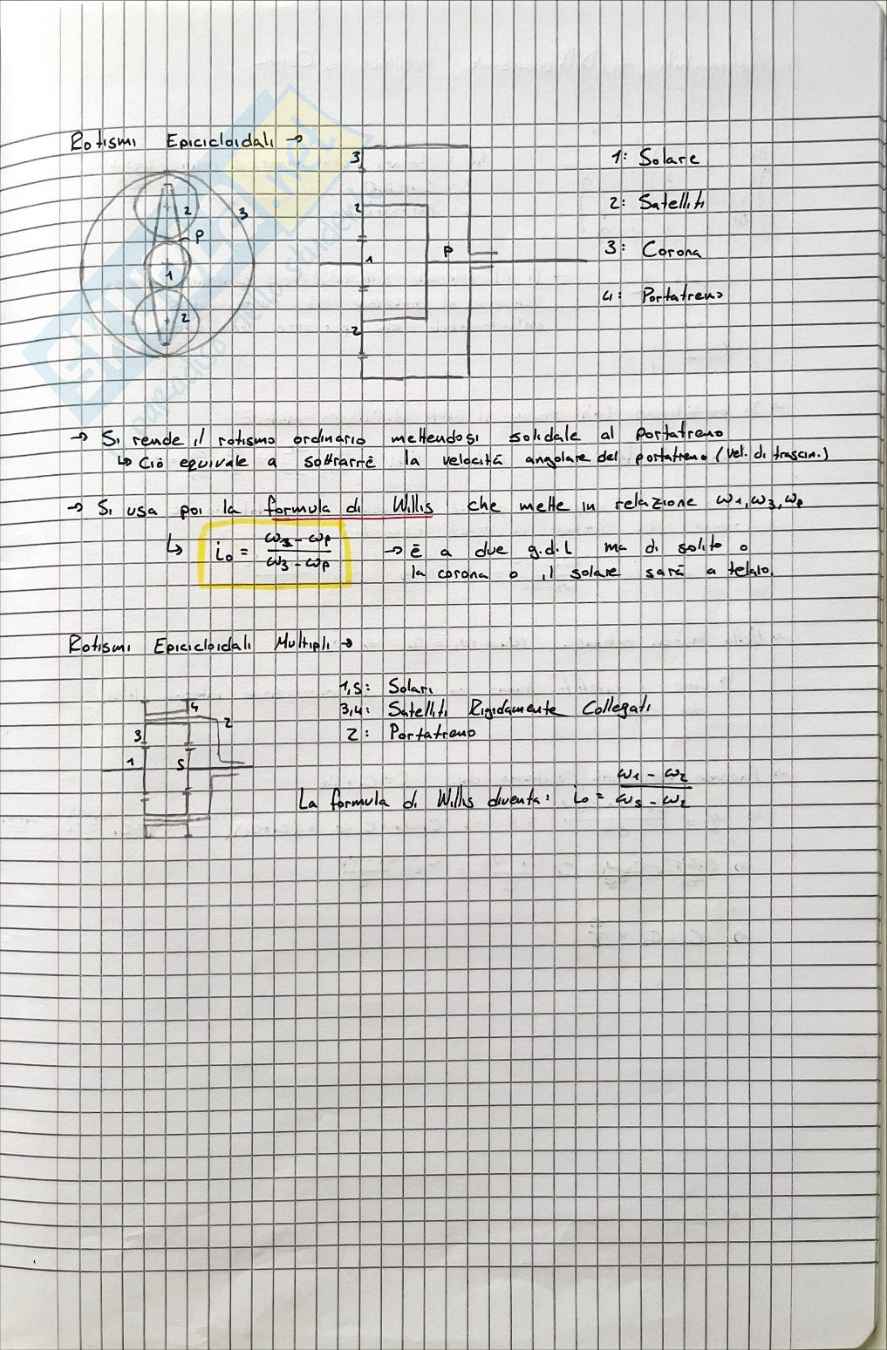 Rotismi Epicicloidali →
3
2
1
2
P
1: Solare
2: Satelliti
3: Corona
4: Portatreno
2
3
P
1
2
→ Si rende il rotismo ordinario mettendosi solidale al portatreno
↳ Ciò equivale a sottrarre la velocità angolare del portatreno (vel. di trascin.)
→ Si usa poi la formula di Willis che mette in relazione ω1, ω3, ωp
↳ io = (ω3 - ωp)/(ω3 - ωp) → È a due g.d.l ma di solito o
la corona o il solare sarà a telaio.
Rotismi Epicicloidali Multipli →
4
2
3
1
5
1,5: Solari
3,4: Satelliti Rigidamente Collegati
2: Portatreno
La formula di Willis diventa: io = (ω1 - ω2)/(ω5 - ω2)